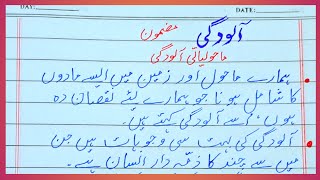 DAY: DATE:
آلودگی مضمون
ماحولیاتی آلودگی
ہمارے ماحول اور زمین میں ایسے مادوں
کا شامل ہونا جو ہمارے لئے نقصان دہ
ہوں، اسے آلودگی کہتے ہیں۔
آلودگی کی بہت سی وجوہات ہیں جن
میں سے چند کا ذمہ دار انسان ہے۔